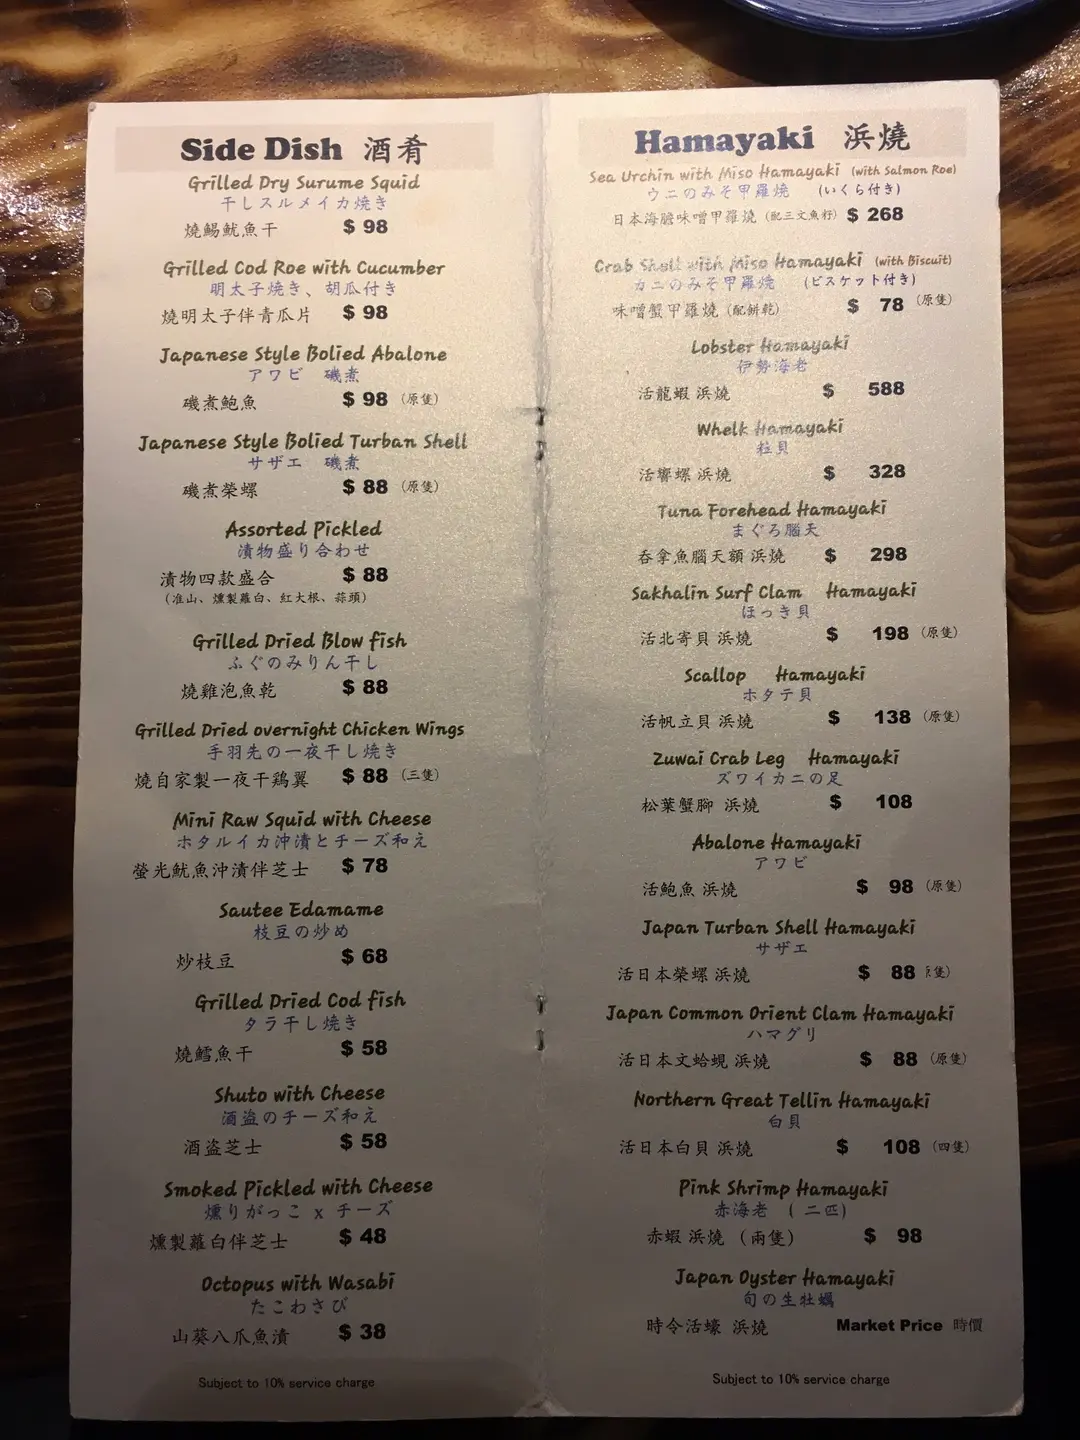 Side Dish 酒肴
Grilled Dry Surume Squid
干しスルメイカ焼き
燒鰑魷魚干 $ 98
Grilled Cod Roe with Cucumber
明太子焼き、胡瓜付き
燒明太子伴青瓜片 $ 98
Japanese Style Bolied Abalone
アワビ 磯煮
磯煮鮑魚 $ 98 (原隻)
Japanese Style Bolied Turban Shell
サザエ 磯煮
磯煮榮螺 $ 88 (原隻)
Assorted Pickled
漬物盛り合わせ
漬物四款盛合 $ 88
(准山、燻製蘿白、紅大根、蒜頭)
Grilled Dried Blow fish
ふぐのみりん干し
燒雞泡魚乾 $ 88
Grilled Dried overnight Chicken Wings
手羽先の一夜干し焼き
燒自家製一夜干鶏翼 $ 88 (三隻)
Mini Raw Squid with Cheese
ホタルイカ沖漬とチーズ和え
螢光魷魚沖漬伴芝士 $ 78
Sautee Edamame
枝豆の炒め
炒枝豆 $ 68
Grilled Dried Cod fish
タラ干し焼き
燒鱈魚干 $ 58
Shuto with Cheese
酒盗のチーズ和え
酒盗芝士 $ 58
Smoked Pickled with Cheese
燻りがっこ x チーズ
燻製蘿白伴芝士 $ 48
Octopus with Wasabi
たこわさび
山葵八爪魚漬 $ 38
Subject to 10% service charge
Hamayaki 浜燒
Sea Urchin with Miso Hamayaki (with Salmon Roe)
ウニのみそ甲羅焼 (いくら付き)
日本海膽味噌甲羅燒 (配三文魚籽) $ 268
Crab Shell with Miso Hamayaki (with Biscuit)
カニのみそ甲羅焼 (ビスケット付き)
味噌蟹甲羅燒 (配餅乾) $ 78 (原隻)
Lobster Hamayaki
伊勢海老
活龍蝦 浜燒 $ 588
Whelk Hamayaki
粒貝
活響螺 浜燒 $ 328
Tuna Forehead Hamayaki
まぐろ脳天
吞拿魚腦天額 浜燒 $ 298
Sakhalin Surf Clam Hamayaki
ほっき貝
活北寄貝 浜燒 $ 198 (原隻)
Scallop Hamayaki
ホタテ貝
活帆立貝 浜燒 $ 138 (原隻)
Zuwai Crab Leg Hamayaki
ズワイカニの足
松葉蟹腳 浜燒 $ 108
Abalone Hamayaki
アワビ
活鮑魚 浜燒 $ 98 (原隻)
Japan Turban Shell Hamayaki
サザエ
活日本榮螺 浜燒 $ 88 隻)
Japan Common Orient Clam Hamayaki
ハマグリ
活日本文蛤蜆 浜燒 $ 88 (原隻)
Northern Great Tellin Hamayaki
白貝
活日本白貝 浜燒 $ 108 (四隻)
Pink Shrimp Hamayaki
赤海老 (二匹)
赤蝦 浜燒 (兩隻) $ 98
Japan Oyster Hamayaki
旬の生牡蠣
時令活蠔 浜燒 Market Price 時價
Subject to 10% service charge